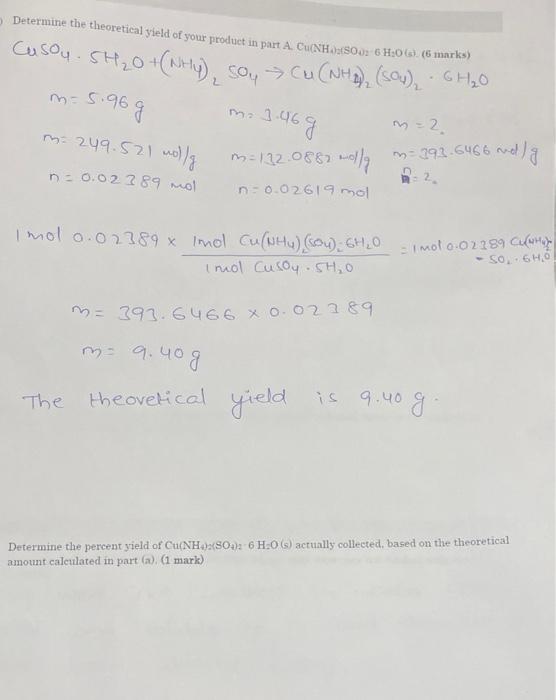 Determine the theoretical yield of your product in part A. Cu(NH₄)₂(SO₄)₂·6 H₂O (s). (6 marks)
CuSO₄ . 5H₂O + (NH₄)₂ SO₄ → Cu(NH₄)₂ (SO₄)₂ . 6H₂O
m= 5.96 g m= 3.46 g m = ?
m= 249.521 mol/g m=132.0882 mol/g m=393.6466 mol/g
n= 0.02389 mol n= 0.02619 mol n= ?
1 mol 0.02389 x 1mol Cu(NH₄)₂(SO₄)₂6H₂O / 1 mol CuSO₄ . 5H₂O = 1mol 0.02389 Cu(NH₄)₂
- SO₂ . 6H₂O
m= 393.6466 x 0.02389
m= 9.40g
The theoretical yield is 9.40 g.
Determine the percent yield of Cu(NH₄)₂(SO₄)₂·6 H₂O (s) actually collected, based on the theoretical
amount calculated in part (a). (1 mark)